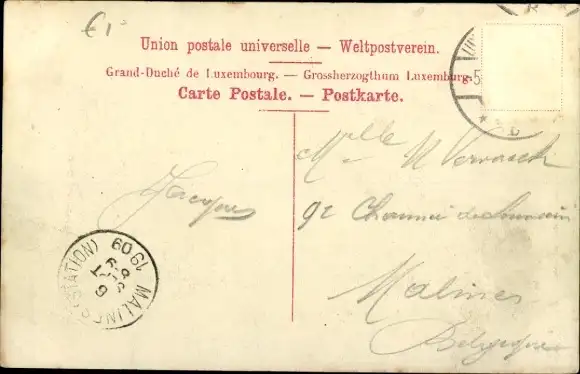 €1
Union postale universelle — Weltpostverein.
Grand-Duché de Luxembourg. — Grossherzogthum Luxemburg.
Carte Postale. — Postkarte.
Melle M Vervaeck
Jacques
92 Chaussée de
Malines
Belgique
MALINES (STATION)
1909